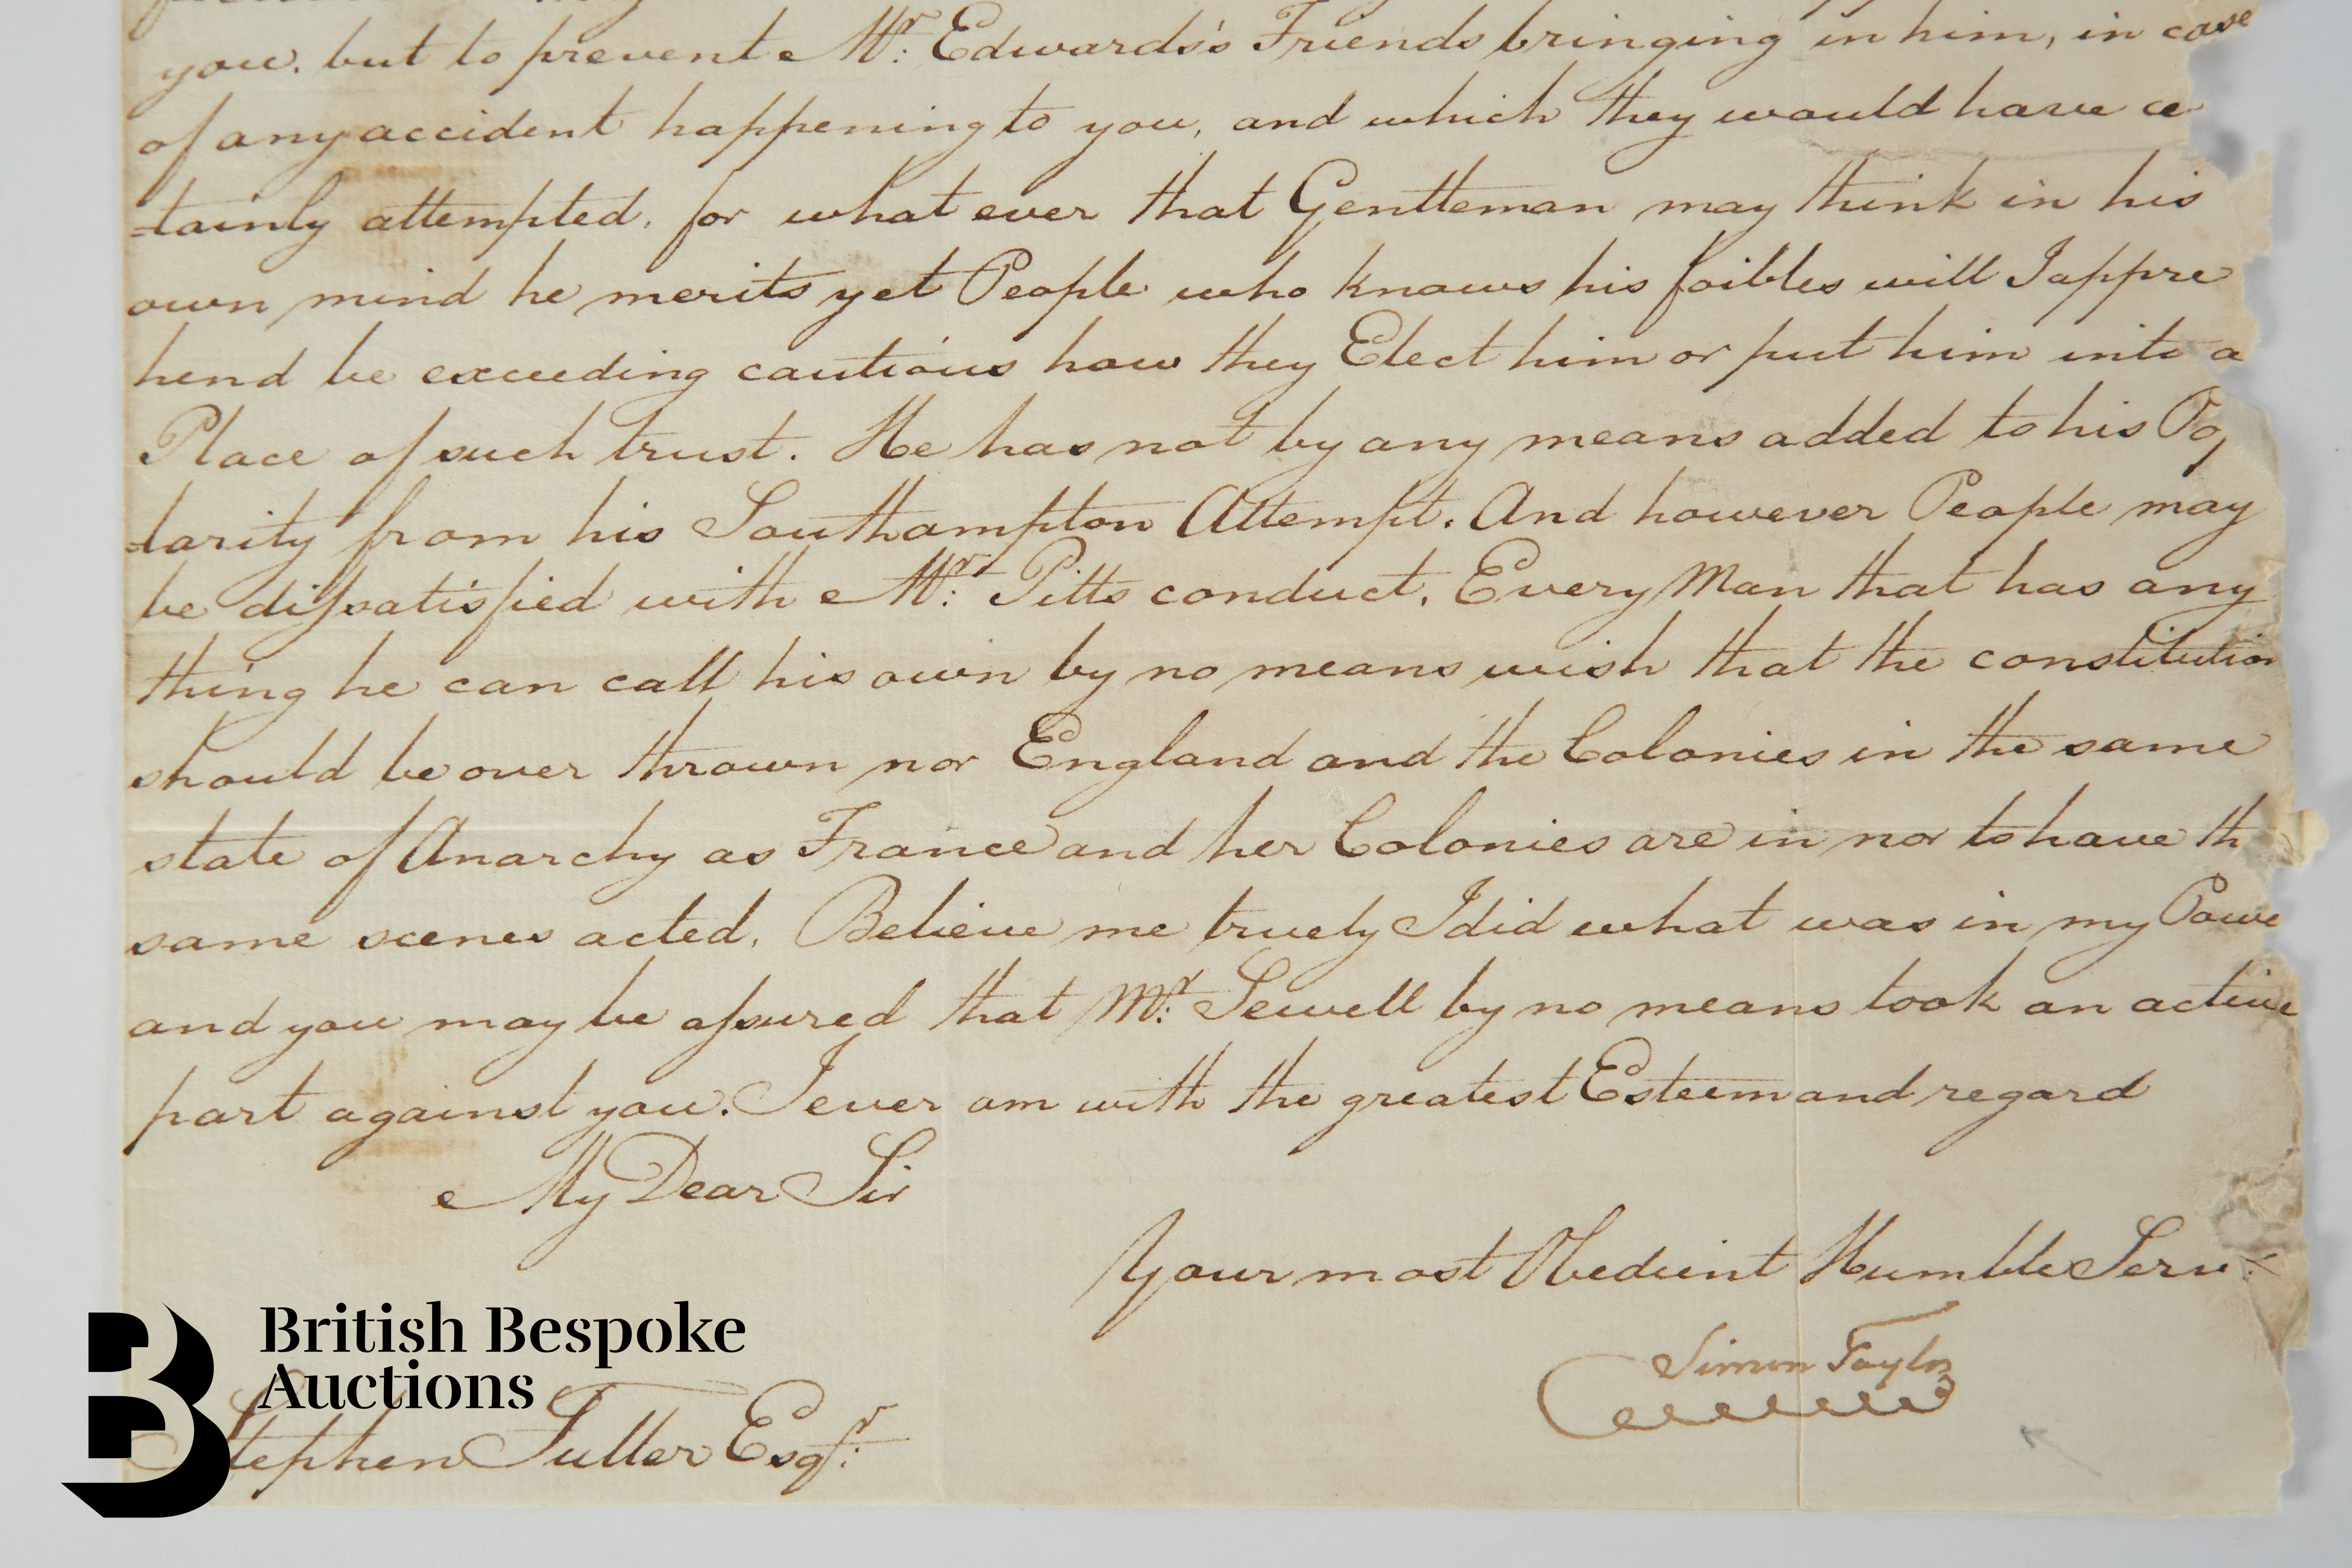 you. but to prevent Mr: Edwards's Friends bringing in him, in case
of any accident happening to you, and which they would have ce
-tainly attempted. for what ever that Gentleman may think in his
own mind he merits yet People who knows his foibles will I appre
hend be exceeding cautious how they Elect him or put him into a
Place of such trust. He has not by any means added to his Pop
-larity from his Southampton Attempt. And however People may
be dissatisfied with Mr: Pitts conduct. Every Man that has any
thing he can call his own by no means wish that the constitution
should be over thrown nor England and the Colonies in the same
state of Anarchy as France and her Colonies are in nor to have th
same scenes acted. Believe me truely I did what was in my Powe
and you may be assured that Mr: Sewell by no means took an active
part against you. I ever am with the greatest Esteem and regard
My Dear Sir
Your most Obedient Humble Serv:t
Simon Taylor
Stephen Fuller Esqr:
British Bespoke
Auctions